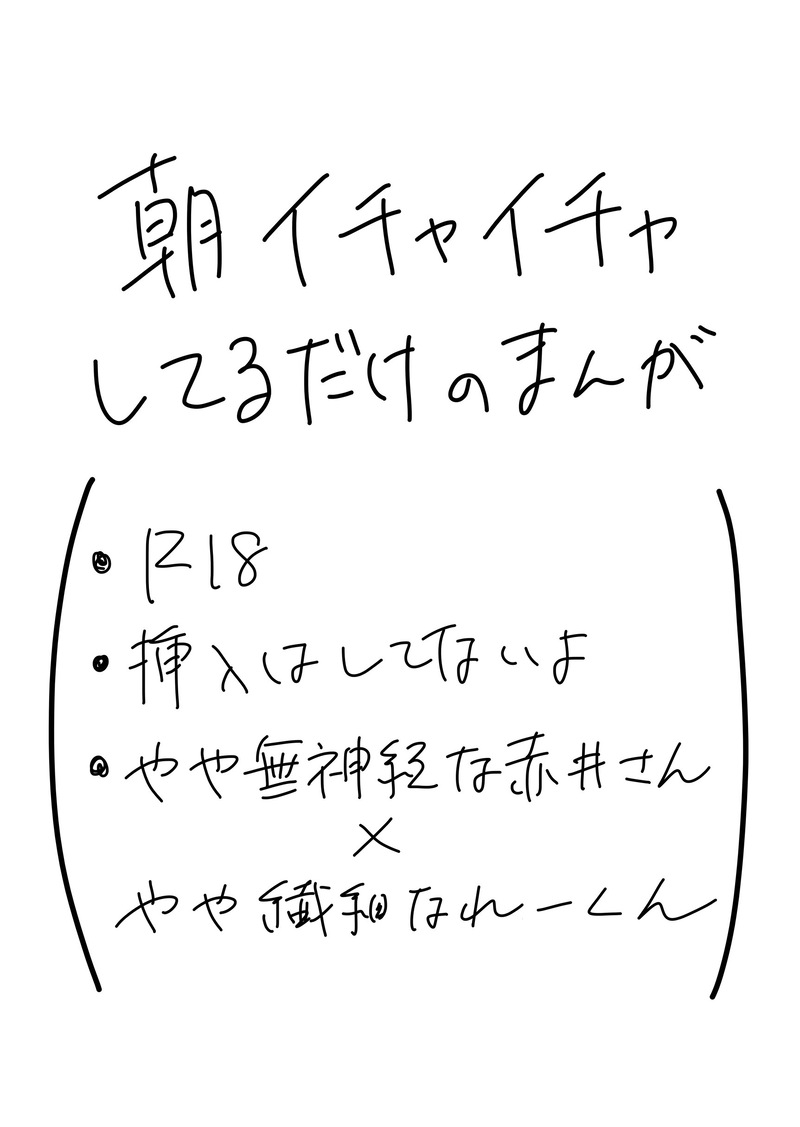 朝イチャイチャ
してるだけのまんが
・R18
・挿入はしてないよ
・やや無神経な赤井さん
×
やや繊細なれーくん